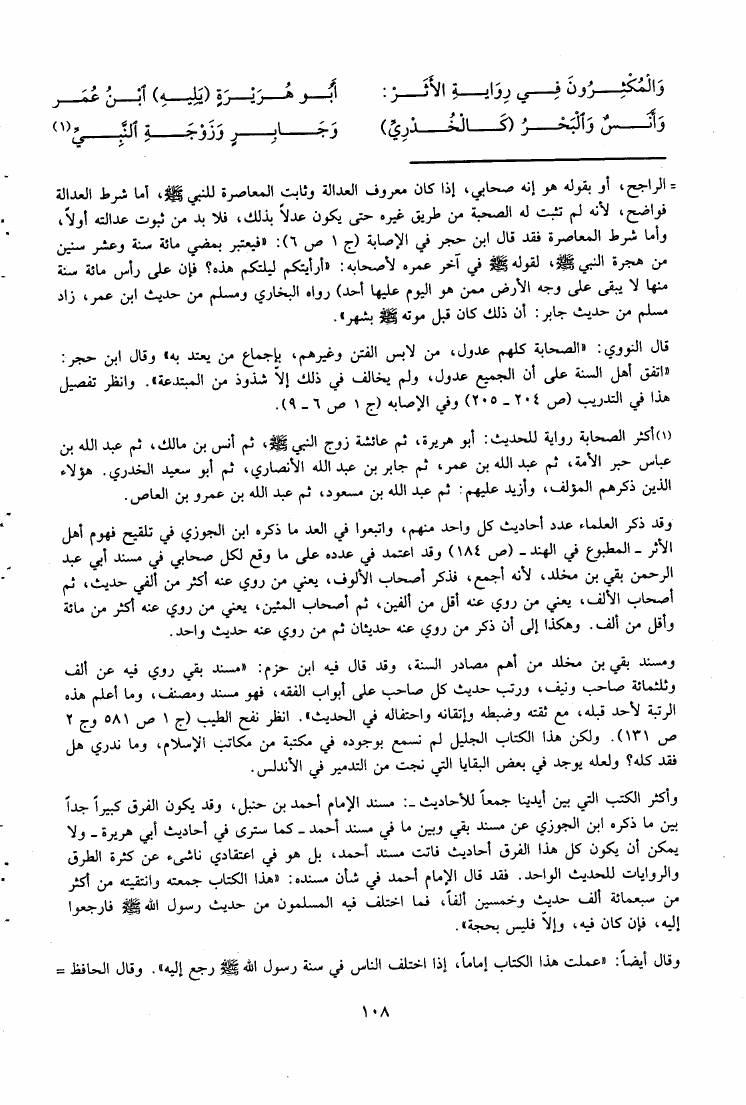 وَالْمُكْثِرُونَ فِي رِوَايَةِ الأَثَرْ: أَبُو هُرَيْرَةٍ (يَلِيهِ) ٱبْنُ عُمَر
وَأَنَسٌ وَٱلْبَحْرُ (كَالْخُدْرِيِّ) وَجَابِرٍ وَزَوْجَةِ ٱلنَّبِيِّ(١)
= الراجح، أو بقوله هو إنه صحابي، إذا كان معروف العدالة وثابت المعاصرة للنبي ﷺ، أما شرط العدالة
فواضح، لأنه لم تثبت له الصحبة من طريق غيره حتى يكون عدلاً بذلك، فلا بد من ثبوت عدالته أولاً،
وأما شرط المعاصرة فقد قال ابن حجر في الإصابة (ج ١ ص ٦): «فيعتبر بمضي مائة سنة وعشر سنين
من هجرة النبي ﷺ، لقوله ﷺ في آخر عمره لأصحابه: «أرأيتكم ليلتكم هذه؟ فإن على رأس مائة سنة
منها لا يبقى على وجه الأرض ممن هو اليوم عليها أحد) رواه البخاري ومسلم من حديث ابن عمر، زاد
مسلم من حديث جابر: أن ذلك كان قبل موته ﷺ بشهر».
قال النووي: «الصحابة كلهم عدول، من لابس الفتن وغيرهم، بإجماع من يعتد به» وقال ابن حجر:
«اتفق أهل السنة على أن الجميع عدول، ولم يخالف في ذلك إلاّ شذوذ من المبتدعة». وانظر تفصيل
هذا في التدريب (ص ٢٠٤ ـ ٢٠٥) وفي الإصابه (ج ١ ص ٦ ـ ٩).
(١) أكثر الصحابة رواية للحديث: أبو هريرة، ثم عائشة زوج النبي ﷺ، ثم أنس بن مالك، ثم عبد الله بن
عباس حبر الأمة، ثم عبد الله بن عمر، ثم جابر بن عبد الله الأنصاري، ثم أبو سعيد الخدري. هؤلاء
الذين ذكرهم المؤلف، وأزيد عليهم: ثم عبد الله بن مسعود، ثم عبد الله بن عمرو بن العاص.
وقد ذكر العلماء عدد أحاديث كل واحد منهم، واتبعوا في العد ما ذكره ابن الجوزي في تلقيح فهوم أهل
الأثر ـ المطبوع في الهند ـ (ص ١٨٤) وقد اعتمد في عدده على ما وقع لكل صحابي في مسند أبي عبد
الرحمن بقي بن مخلد، لأنه أجمع، فذكر أصحاب الألوف، يعني من روي عنه أكثر من ألفي حديث، ثم
أصحاب الألف، يعني من روي عنه أقل من ألفين، ثم أصحاب المئين، يعني من روي عنه أكثر من مائة
وأقل من ألف. وهكذا إلى أن ذكر من روي عنه حديثان ثم من روي عنه حديث واحد.
ومسند بقي بن مخلد من أهم مصادر السنة، وقد قال فيه ابن حزم: «مسند بقي روي فيه عن ألف
وثلثمائة صاحب ونيف، ورتب حديث كل صاحب على أبواب الفقه، فهو مسند ومصنف، وما أعلم هذه
الرتبة لأحد قبله، مع ثقته وضبطه وإتقانه واحتفاله في الحديث». انظر نفح الطيب (ج ١ ص ٥٨١ وج ٢
ص ١٣١). ولكن هذا الكتاب الجليل لم نسمع بوجوده في مكتبة من مكاتب الإسلام، وما ندري هل
فقد كله؟ ولعله يوجد في بعض البقايا التي نجت من التدمير في الأندلس.
وأكثر الكتب التي بين أيدينا جمعاً للأحاديث ـ: مسند الإمام أحمد بن حنبل، وقد يكون الفرق كبيراً جداً
بين ما ذكره ابن الجوزي عن مسند بقي وبين ما في مسند أحمد ـ كما سترى في أحاديث أبي هريرة ـ ولا
يمكن أن يكون كل هذا الفرق أحاديث فاتت مسند أحمد، بل هو في اعتقادي ناشىء عن كثرة الطرق
والروايات للحديث الواحد. فقد قال الإمام أحمد في شأن مسنده: «هذا الكتاب جمعته وانتقيته من أكثر
من سبعمائة ألف حديث وخمسين ألفاً، فما اختلف فيه المسلمون من حديث رسول الله ﷺ فارجعوا
إليه، فإن كان فيه، وإلاّ فليس بحجة».
وقال أيضاً: «عملت هذا الكتاب إماماً، إذا اختلف الناس في سنة رسول الله ﷺ رجع إليه». وقال الحافظ =
١٠٨